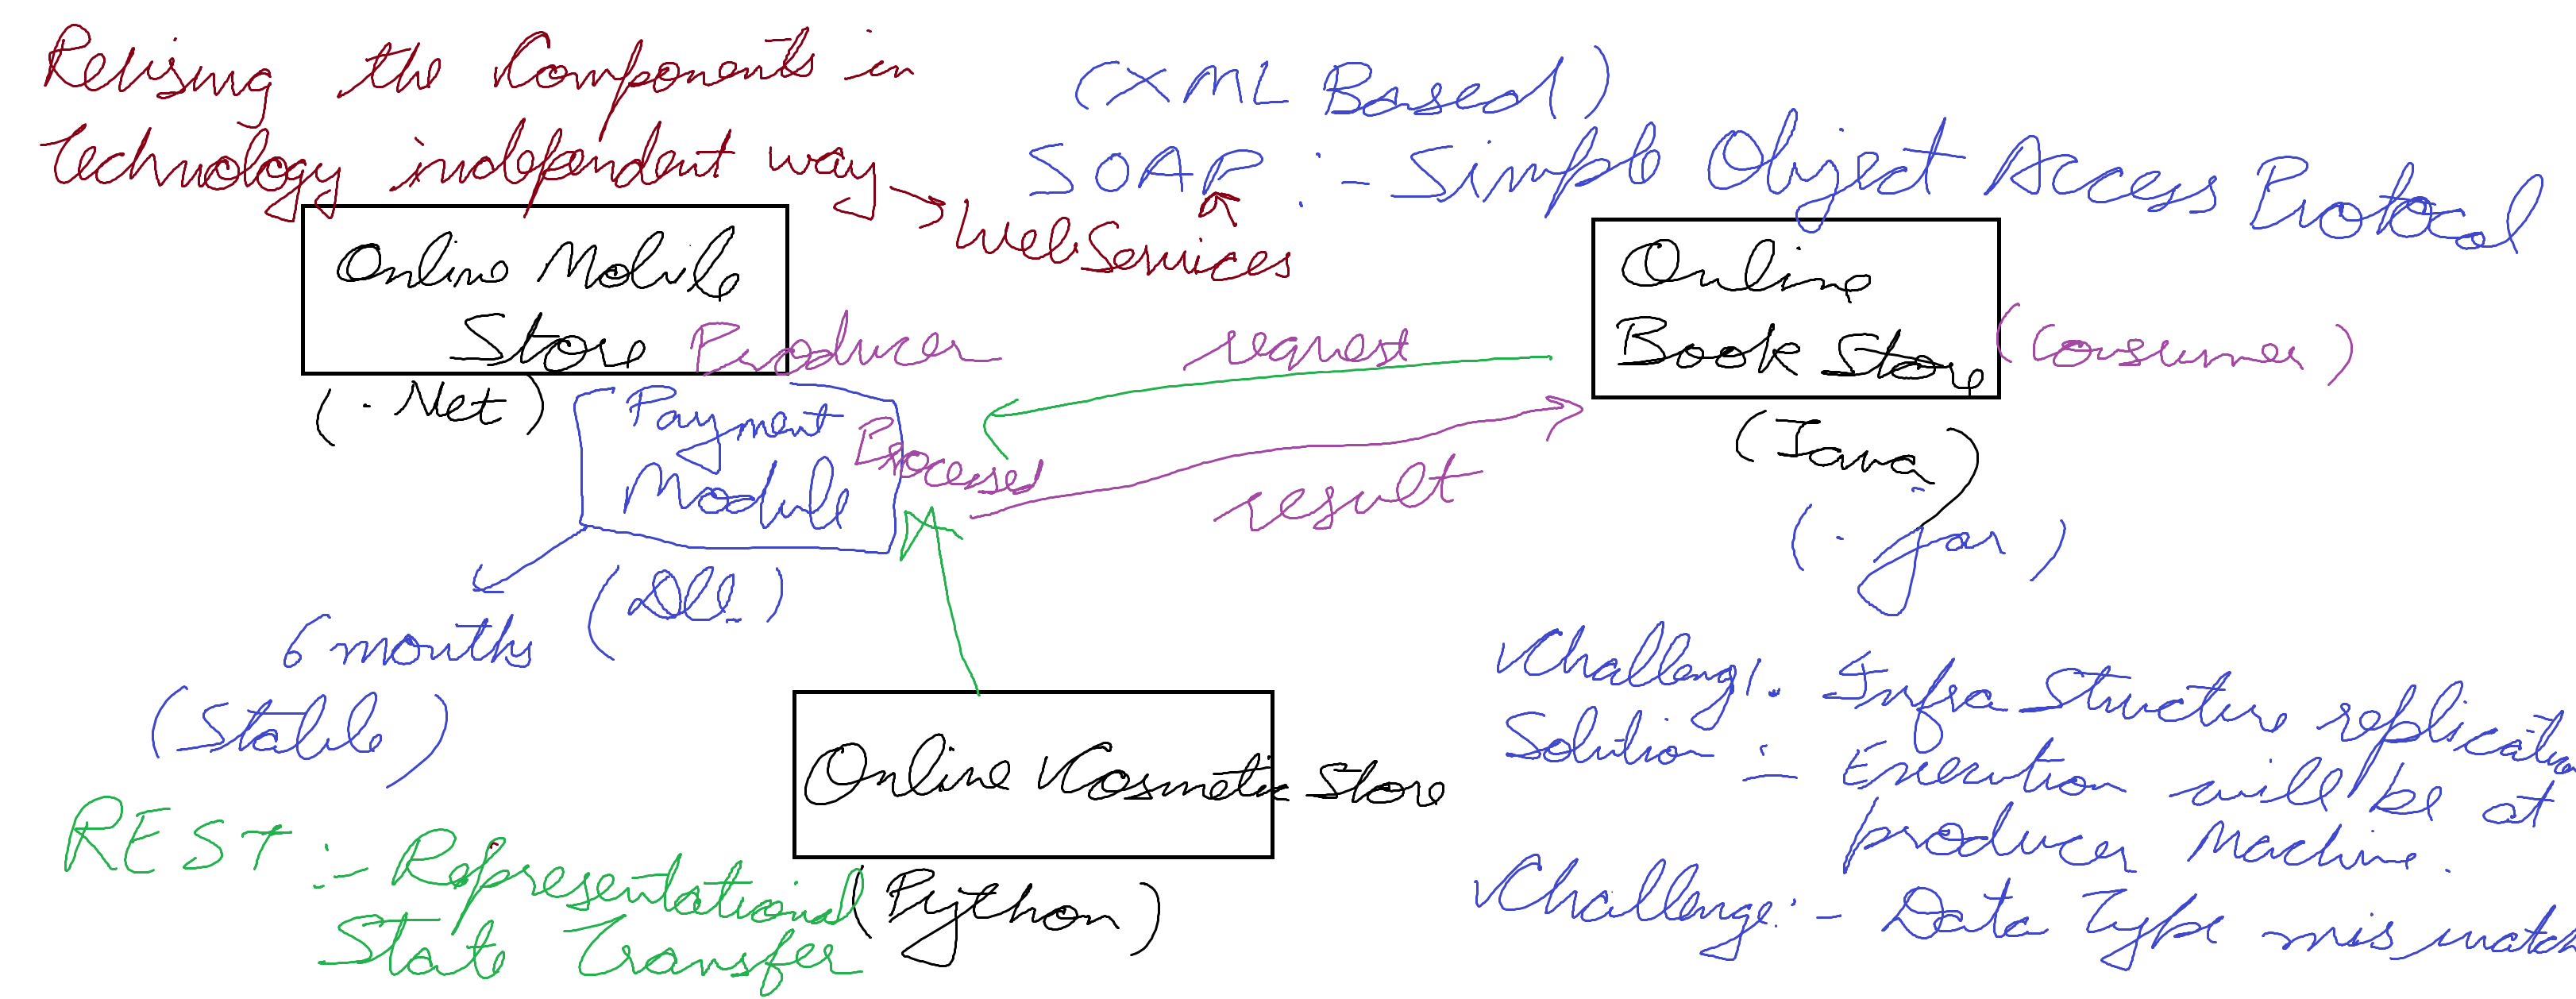 Reusing the Components in
technology independent way → Web Services
(XML Based)
SOAP :- Simple Object Access Protocol
Online Mobile
Store
(.Net)
Producer
Payment
Module
Processed
(DLL)
6 months
(Stable)
request
result
Online
Book Store
(Consumer)
(Java)
(.jar)
Online Cosmetic Store
(Python)
REST :- Representational
State Transfer
Challeng1. Infra Structure replication
Solution :- Execution will be at
producer Machine.
Challenge:- Data Type mis match